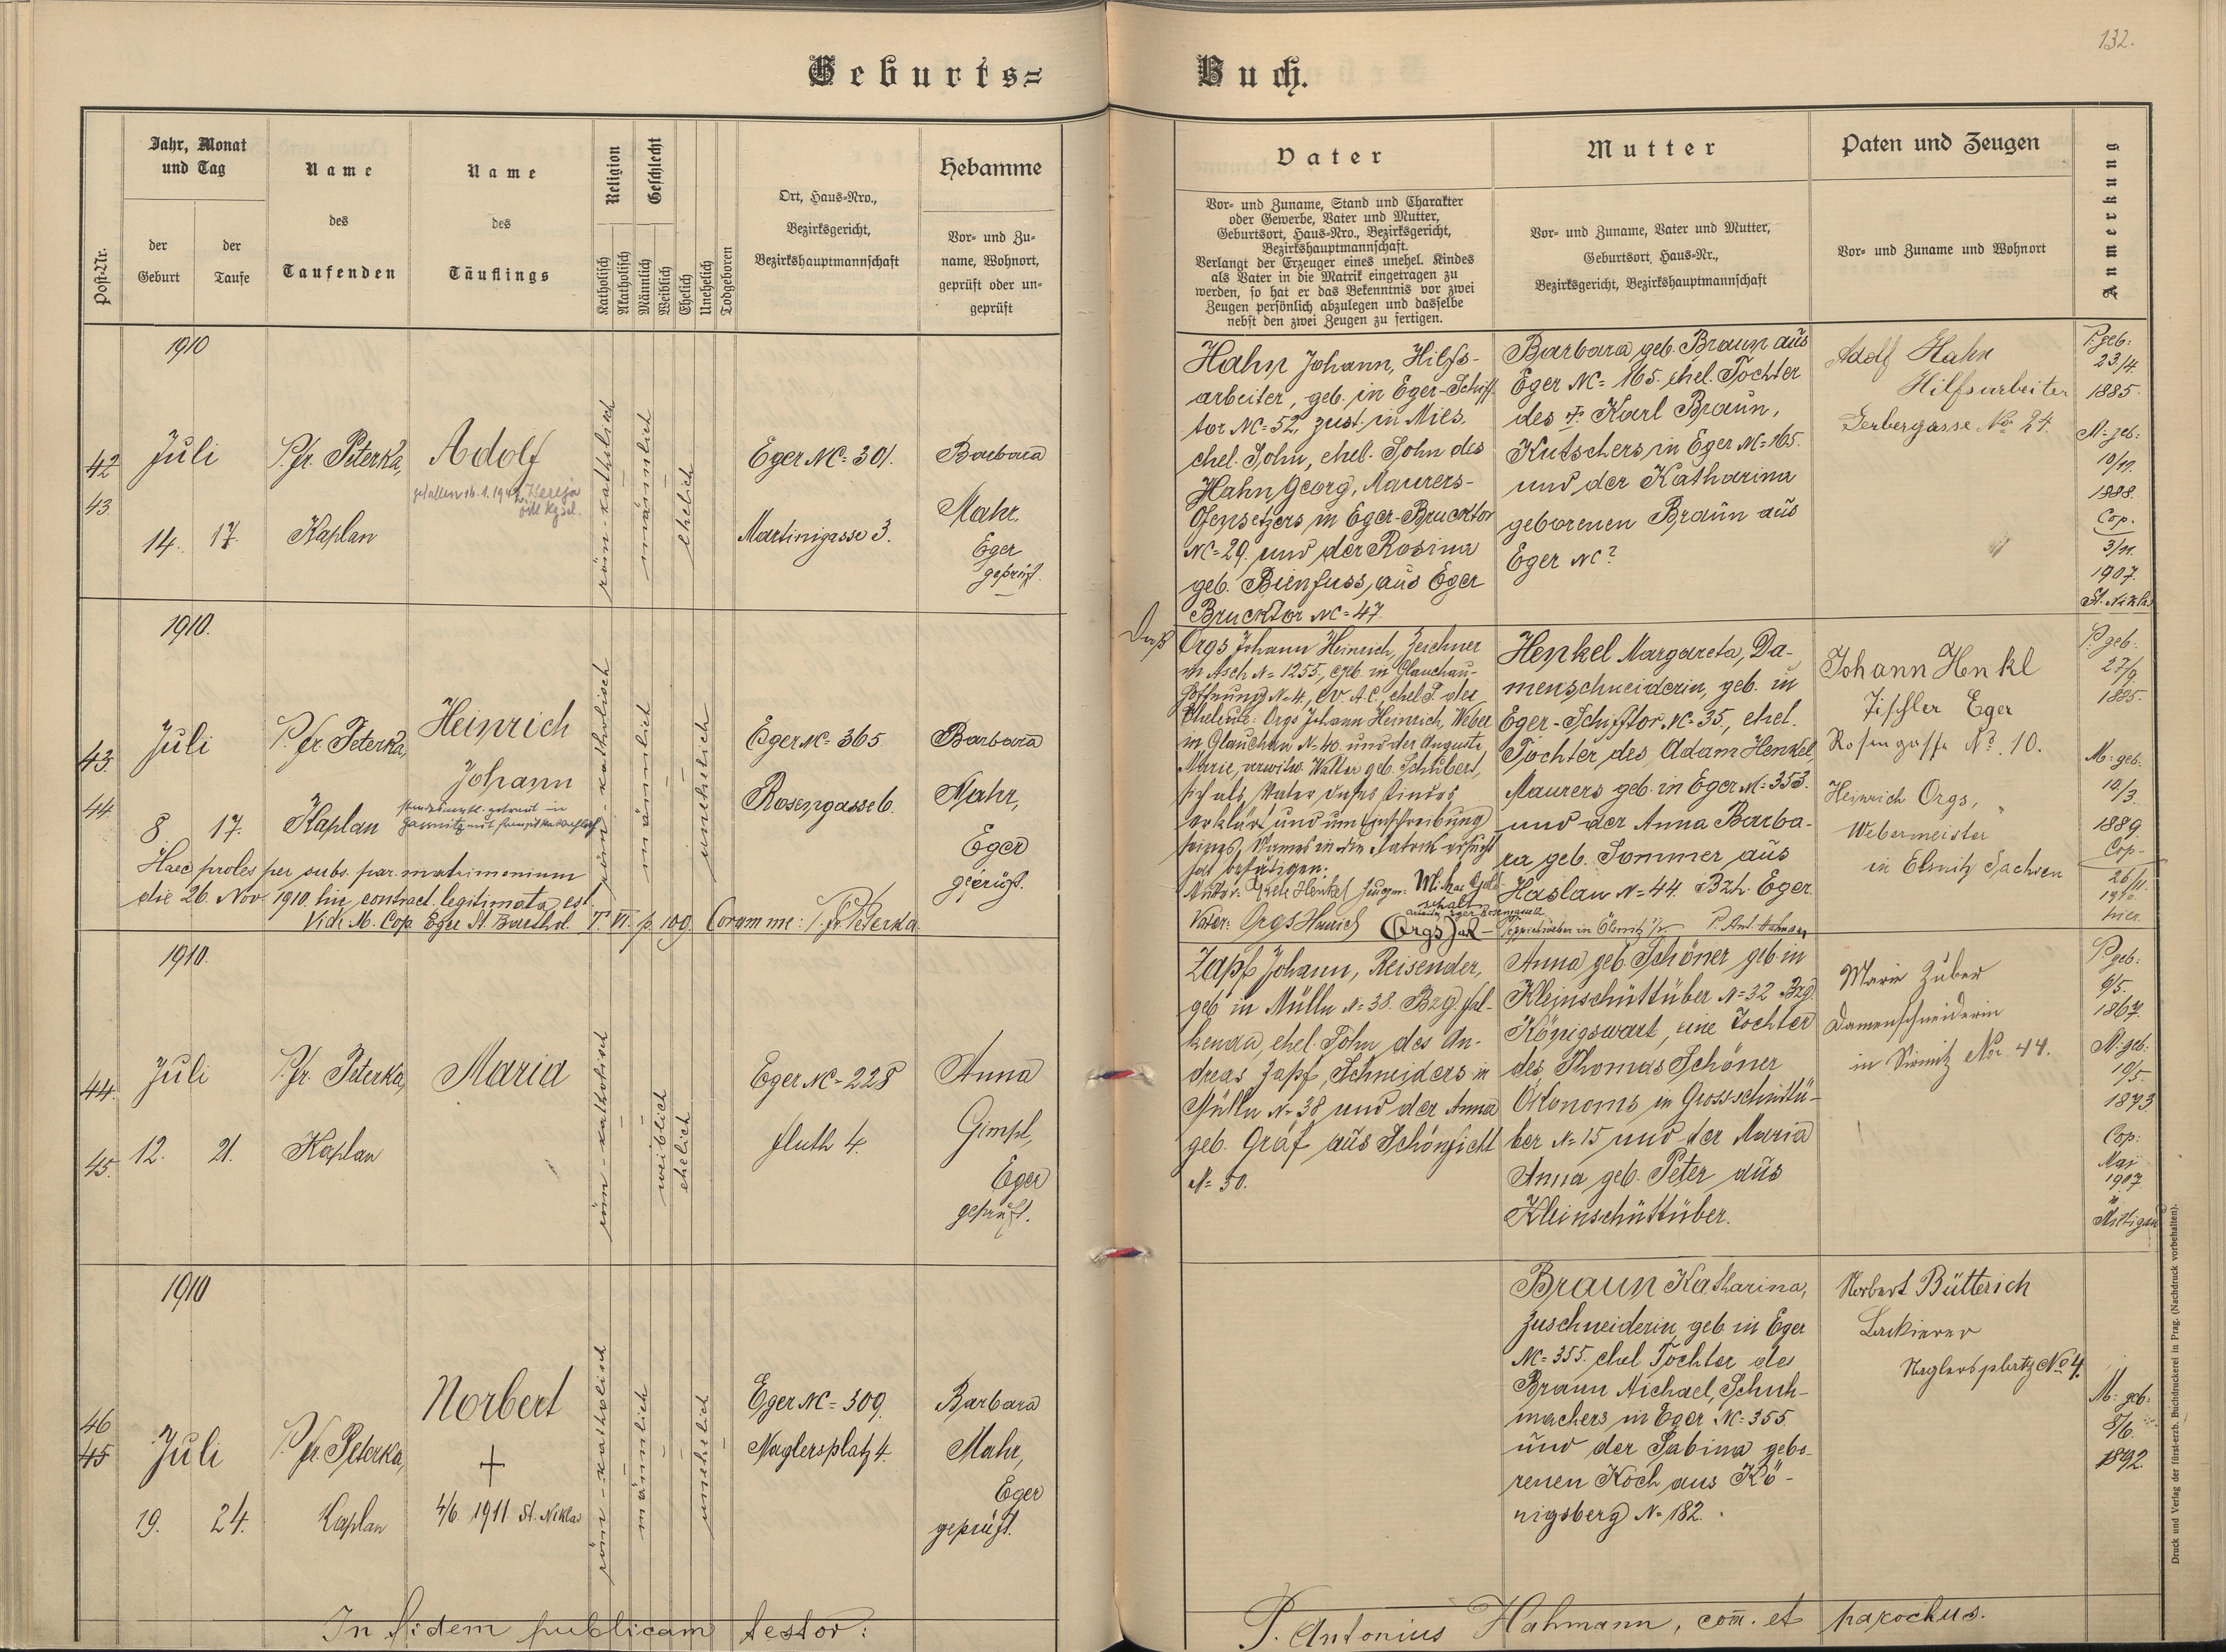 132.
Geburts=
Buch.
Post-Nr.
Jahr, Monat
und Tag
der
Geburt
der
Taufe
Name
des
Taufenden
Name
des
Täuflings
Religion
Katholisch
Akatholisch
Geschlecht
Männlich
Weiblich
Ehelich
Unehelich
Todgeboren
Ort, Haus=Nro.,
Bezirksgericht,
Bezirkshauptmannschaft
Hebamme
Vor= und Zu=
name, Wohnort,
geprüft oder un=
geprüft
Vater
Vor= und Zuname, Stand und Charakter
oder Gewerbe, Vater und Mutter,
Geburtsort, Haus=Nro., Bezirksgericht,
Bezirkshauptmannschaft.
Verlangt der Erzeuger eines unehel. Kindes
als Vater in die Matrik eingetragen zu
werden, so hat er das Bekenntnis vor zwei
Zeugen persönlich abzulegen und dasselbe
nebst den zwei Zeugen zu fertigen.
Mutter
Vor= und Zuname, Vater und Mutter,
Geburtsort, Haus=Nr.,
Bezirksgericht, Bezirkshauptmannschaft
Paten und Zeugen
Vor= und Zuname und Wohnort
Anmerkung
1910
42
43.
Juli
14. 17.
P. fr. Peterka,
Kaplan
Adolf
gefallen 16.1.1942
röm-katholisch
männlich
ehelich
Eger NC= 301.
Martinigasse 3.
Barbara
Mahr.
Eger
geprüft.
Hahn Johann, Hilfs-
arbeiter, geb. in Eger-Schiff-
tor NC= 52, zust. in Mies.
ehel. Sohn, ehel. Sohn des
Hahn Georg, Maurers-
Ofensetzers in Eger-Brucktor
NC= 29. und der Rosina
geb. Bienfuss, aus Eger
Brucktor NC= 47.
Barbara geb. Braun aus
Eger NC= 165. ehel. Tochter
des + Karl Braun,
Kutschers in Eger NC= 165.
und der Katharina
geborenen Braun aus
Eger NC?
Adolf Hahn
Hilfsarbeiter
Gerbergasse No 24.
P. geb:
23/4
1885.
M: geb:
10/11.
1888.
Cop.
3/11.
1907.
St. Nikla
1910.
43.
44.
Juli
8. 17.
P. fr. Peterka,
Kaplan
Heinrich
Johann
röm-katholisch
männlich
unehelich
Eger NC= 365.
Rosengasse 6.
Barbara
Mahr,
Eger
geprüft.
Haec proles per subs. par. matrimonium
die 26. Nov. 1910. hic contract. legitimata est.
Vide M. Cop. Eger St. Barthol. T. VI. p. 109. Coram me: P. fr. Peterka.
Daß
Orgs Johann Heinrich, Zeichner
in Asch N= 1255., geb. in Glauchau-
Hoffnung N= 4, ev. A.C., ehel. S. der
Eheleute: Orgs Johann Heinrich, Weber
in Glauchau N= 40. und der Auguste
Marie, verwitw. Walter geb. Schubert,
sich als Vater dieses Kindes
erklärt und um Einschreibung
seines Namens in die Matrik ersucht
hat bestätigen:
Vater: Orgs Heinrich
Henkel Margareta, Da-
menschneiderin, geb. in
Eger-Schifftor NC= 35, ehel.
Tochter des Adam Henkel,
Maurers geb. in Eger NC= 353.
und der Anna Barba-
ra geb. Sommer aus
Haslau N= 44. Bzh. Eger.
Johann Henkl
Tischler Eger
Rosengasse No. 10.
Heinrich Orgs,
Webermeister
in Elsnitz Sachsen
P. geb.
27/9
1885.
M: geb.
10/3.
1889.
Cop.
26/11.
1910.
hier.
1910.
44.
45.
Juli
12. 21.
P. fr. Peterka,
Kaplan
Maria
röm-katholisch
weiblich
ehelich
Eger NC= 228
fluth 4.
Anna
Gimpl,
Eger
geprüft.
Zapf Johann, Reisender,
geb. in Mülln N= 38. Bzg. Fal-
kenau, ehel. Sohn des An-
dreas Zapf, Schneiders in
Mülln N= 38 und der Anna
geb. Gräf aus Schönficht
N= 50.
Anna geb. Schöner geb. in
Kleinschüttüber N= 32 Bzg.
Königswart, eine Tochter
des Thomas Schöner
Ökonoms in Grosschüttü-
ber N= 15 und der Maria
Anna geb. Peter aus
Kleinschüttüber.
Marie Zuber
Damenschneiderin
in Sirmitz No. 44.
P. geb:
9/5.
1867.
M: geb:
19/5.
1873.
Cop:
Mai
1907
in
Miltigau
1910
46
45
Juli
19. 24.
P. fr. Peterka,
Kaplan
Norbert
+
4/6 1911 St. Niklas
röm-katholisch
männlich
unehelich
Eger NC= 309.
Naglersplatz 4.
Barbara
Mahr,
Eger
geprüft.
Braun Katharina,
Zuschneiderin, geb. in Eger
NC= 355. ehel. Tochter des
Braun Michael, Schuh-
machers in Eger NC= 355.
und der Sabina gebo-
renen Koch aus Kö-
nigsberg N= 182.
Norbert Bütterich
Lackierer
Naglersplatz No 4.
M: geb.
8/6.
1892.
In fidem publicam testor:
P. Antonius Hahmann, com. et parochus.
Druck und Verlag der fürst-erzb. Buchdruckerei in Prag. (Nachdruck vorbehalten).